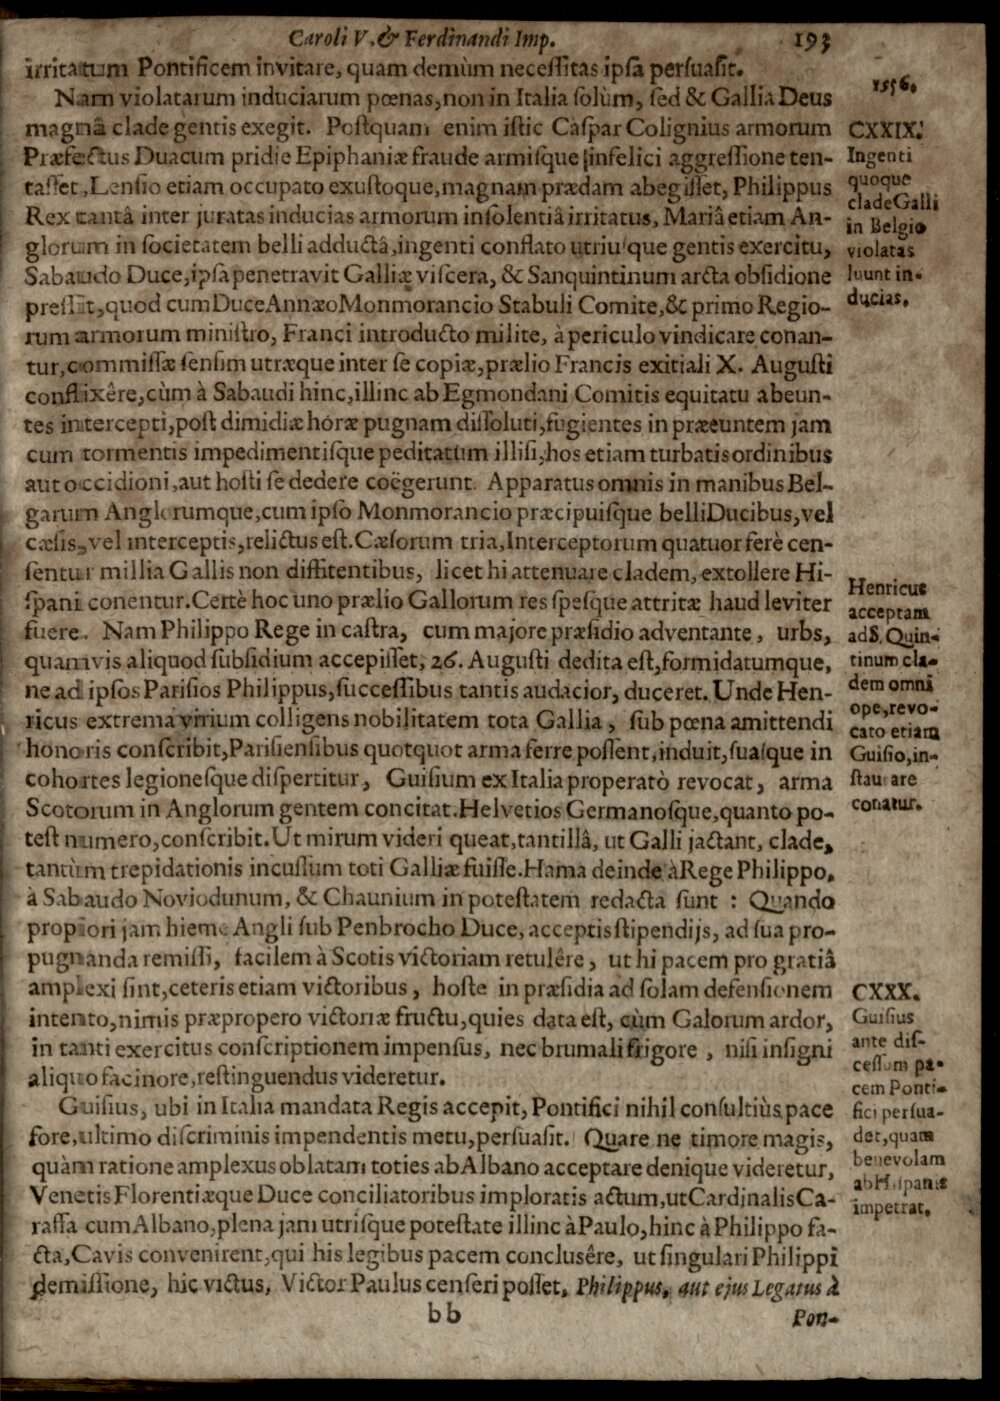 Caroli V. & Ferdinandi Imp. 193
irritatum Pontificem invitare, quam demùm neceſſitas ipſa perſuaſit.
1556.
Nam violatarum induciarum pœnas, non in Italia ſolùm, ſed & Gallia Deus
magnâ clade gentis exegit. Poſtquam enim iſtic Caſpar Colignius armorum
Præfectus Duacum pridie Epiphaniæ fraude armiſque infelici aggreſſione ten-
taſſet, Lenſio etiam occupato exuſtoque, magnam prædam abegiſſet, Philippus
Rex tantâ inter juratas inducias armorum inſolentiâ irritatus, Mariâ etiam An-
glorum in ſocietatem belli adductâ, ingenti conflato utriuſque gentis exercitu,
Sabaudo Duce, ipſa penetravit Galliæ viſcera, & Sanquintinum arcta obſidione
preſſit, quod cum Duce Annæo Monmorancio Stabuli Comite, & primo Regio-
rum armorum miniſtro, Franci introducto milite, à periculo vindicare conan-
tur, commiſſæ ſenſim utræque inter ſe copiæ, prælio Francis exitiali X. Auguſti
conflixêre, cùm à Sabaudi hinc, illinc ab Egmondani Comitis equitatu abeun-
tes intercepti, poſt dimidiæ horæ pugnam diſſoluti, fugientes in præeuntem jam
cum tormentis impedimentiſque peditatum illiſi, hos etiam turbatis ordinibus
aut occidioni, aut hoſti ſe dedere coëgerunt. Apparatus omnis in manibus Bel-
garum Anglorumque, cum ipſo Monmorancio præcipuiſque belli Ducibus, vel
cæſis, vel interceptis, relictus eſt. Cæſorum tria, Interceptorum quatuor ferè cen-
ſentur millia Gallis non diffitentibus, licet hi attenuare cladem, extollere Hi-
ſpani conentur. Certè hoc uno prælio Gallorum res ſpeſque attritæ haud leviter
fuere. Nam Philippo Rege in caſtra, cum majore præſidio adventante, urbs,
quamvis aliquod ſubſidium accepiſſet, 26. Auguſti dedita eſt, formidatumque,
ne ad ipſos Pariſios Philippus, ſucceſſibus tantis audacior, duceret. Unde Hen-
ricus extrema virium colligens nobilitatem tota Gallia, ſub pœna amittendi
honoris conſcribit, Pariſienſibus quotquot arma ferre poſſent, induit, ſuaſque in
cohortes legioneſque diſpertitur, Guiſium ex Italia properatò revocat, arma
Scotorum in Anglorum gentem concitat. Helvetios Germanoſque, quanto po-
teſt numero, conſcribit. Ut mirum videri queat, tantillâ, ut Galli jactant, clade,
tantùm trepidationis incuſſum toti Galliæ fuiſſe. Hama deinde à Rege Philippo,
à Sabaudo Noviodunum, & Chaunium in poteſtatem redacta ſunt : Quando
propiori jam hieme Angli ſub Penbrocho Duce, acceptis ſtipendijs, ad ſua pro-
pugnanda remiſſi, facilem à Scotis victoriam retulêre, ut hi pacem pro gratiâ
amplexi ſint, ceteris etiam victoribus, hoſte in præſidia ad ſolam defenſionem
intento, nimis præpropero victoriæ fructu, quies data eſt, cùm Galorum ardor,
in tanti exercitus conſcriptionem impenſus, nec brumali frigore, niſi inſigni
aliquo facinore, reſtinguendus videretur.
Guiſius, ubi in Italia mandata Regis accepit, Pontifici nihil conſultiùs pace
fore, ultimo diſcriminis impendentis metu, perſuaſit. Quare ne timore magis,
quàm ratione amplexus oblatam toties ab Albano acceptare denique videretur,
Venetis Florentiæque Duce conciliatoribus imploratis actum, ut Cardinalis Ca-
raffa cum Albano, plena jam utriſque poteſtate illinc à Paulo, hinc à Philippo fa-
cta, Cavis convenirent, qui his legibus pacem concluſêre, ut ſingulari Philippi
demiſſione, hic victus, Victor Paulus cenſeri poſſet. Philippus, aut ejus Legatus à
bb Pon-
CXXIX.
Ingenti
quoque
clade Galli
in Belgio
violatas
luunt in-
ducias.
Henricus
acceptam
ad S. Quin-
tinum cla-
dem omni
ope, revo-
cato etiam
Guiſio, in-
ſtaurare
conatur.
CXXX.
Guiſius
ante diſ-
ceſſum pa-
cem Ponti-
fici perſua-
det, quam
benevolam
ab Hiſpanis
impetrat.